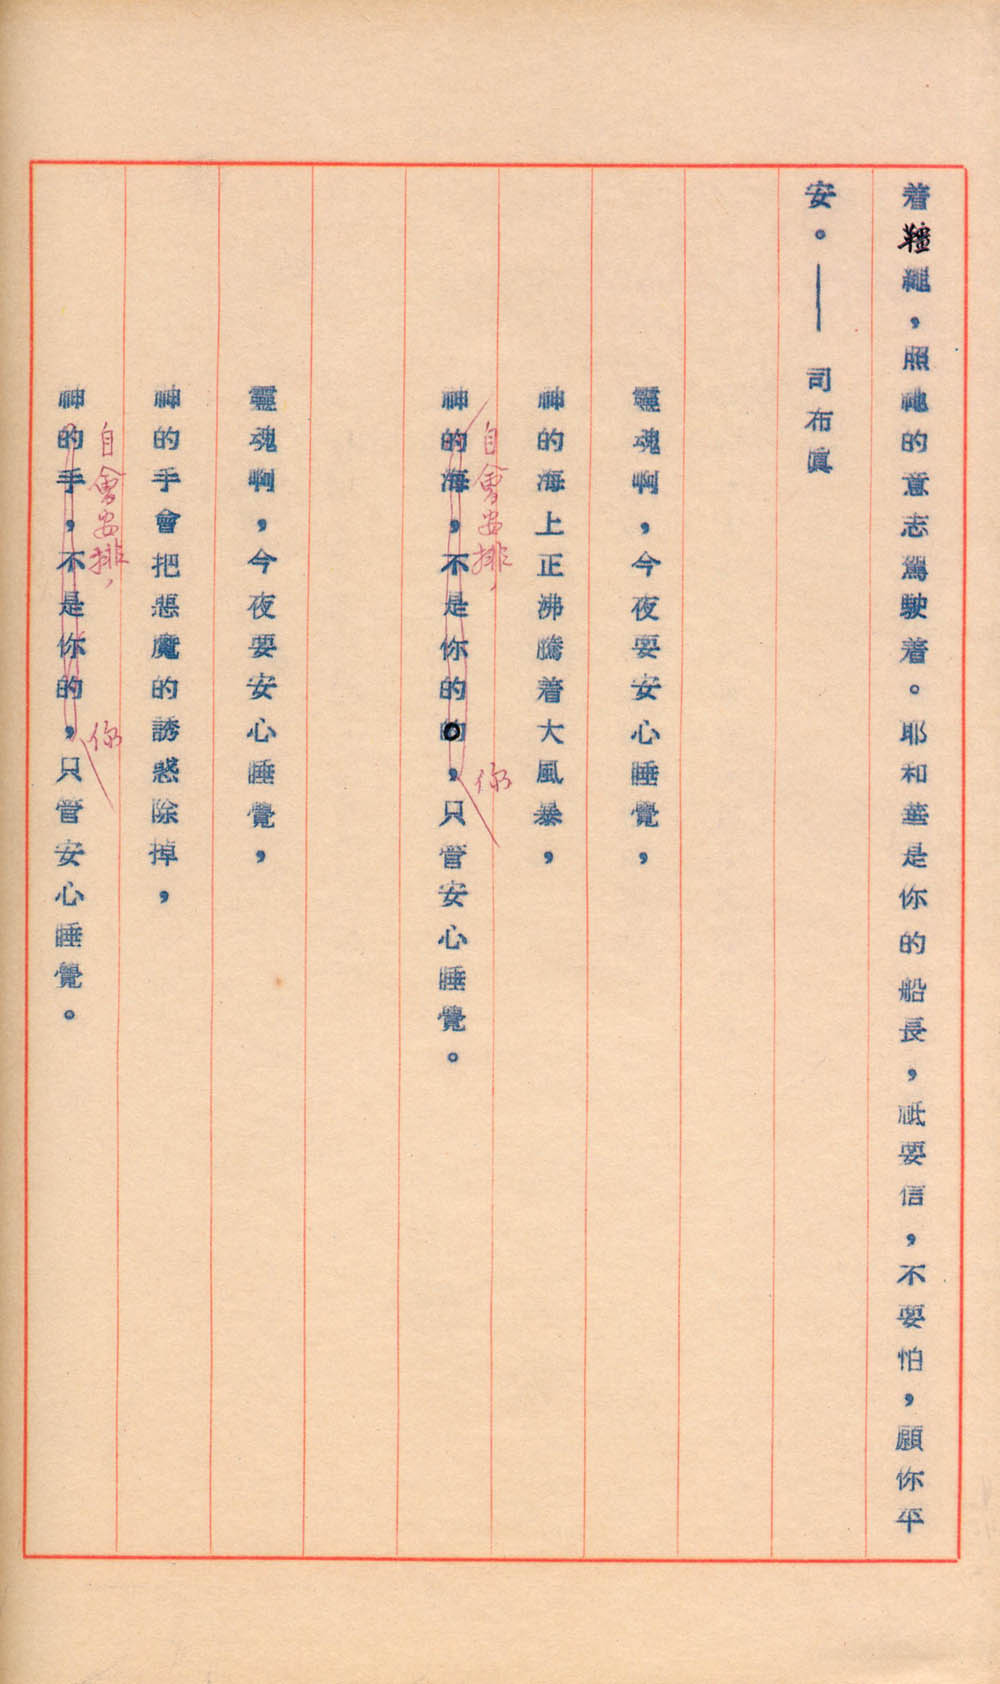 着韁繩，照祂的意志駕駛着。耶和華是你的船長，祗要信，不要怕，願你平
安。——司布眞
靈魂啊，今夜要安心睡覺，
神的海上正沸騰着大風暴，
自會安排，你
神的海，不是你的的，只管安心睡覺。
靈魂啊，今夜要安心睡覺，
神的手會把惡魔的誘惑除掉，
自會安排，你
神的手，不是你的，只管安心睡覺。